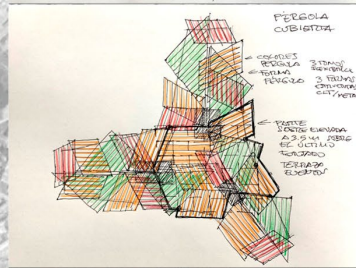 PÉRGOLA
CUBIERTA
← COLORES
PÉRGOLA
3 TONOS
← FORMA
PÉRGOLA
3 FORMAS
← PARTE
SOBRE ELEVADA
A 3.5 m SOBRE
EL ÚLTIMO
FORJADO
TERRAZA